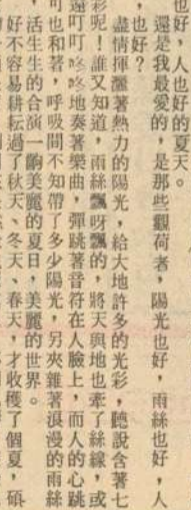 也好，人也好的夏天。
還是我最愛的，是那些觀荷者，陽光也好，雨絲也好，人
也好？
盡情揮灑著熱力的陽光，給大地許多的光彩，聽說含著七
彩呢！誰又知道，雨絲飄呀飄的，將天與地也牽了絲線，或
遠叮叮咚咚地奏著樂曲，彈跳著音符在人臉上，而人的心跳
可也和著，呼吸間不知帶了多少陽光，另夾雜著浪漫的雨絲
，活生生的合演一齣美麗的夏日，美麗的世界。
好不容易耕耘過了秋天、冬天、春天，才收穫了個夏，碩